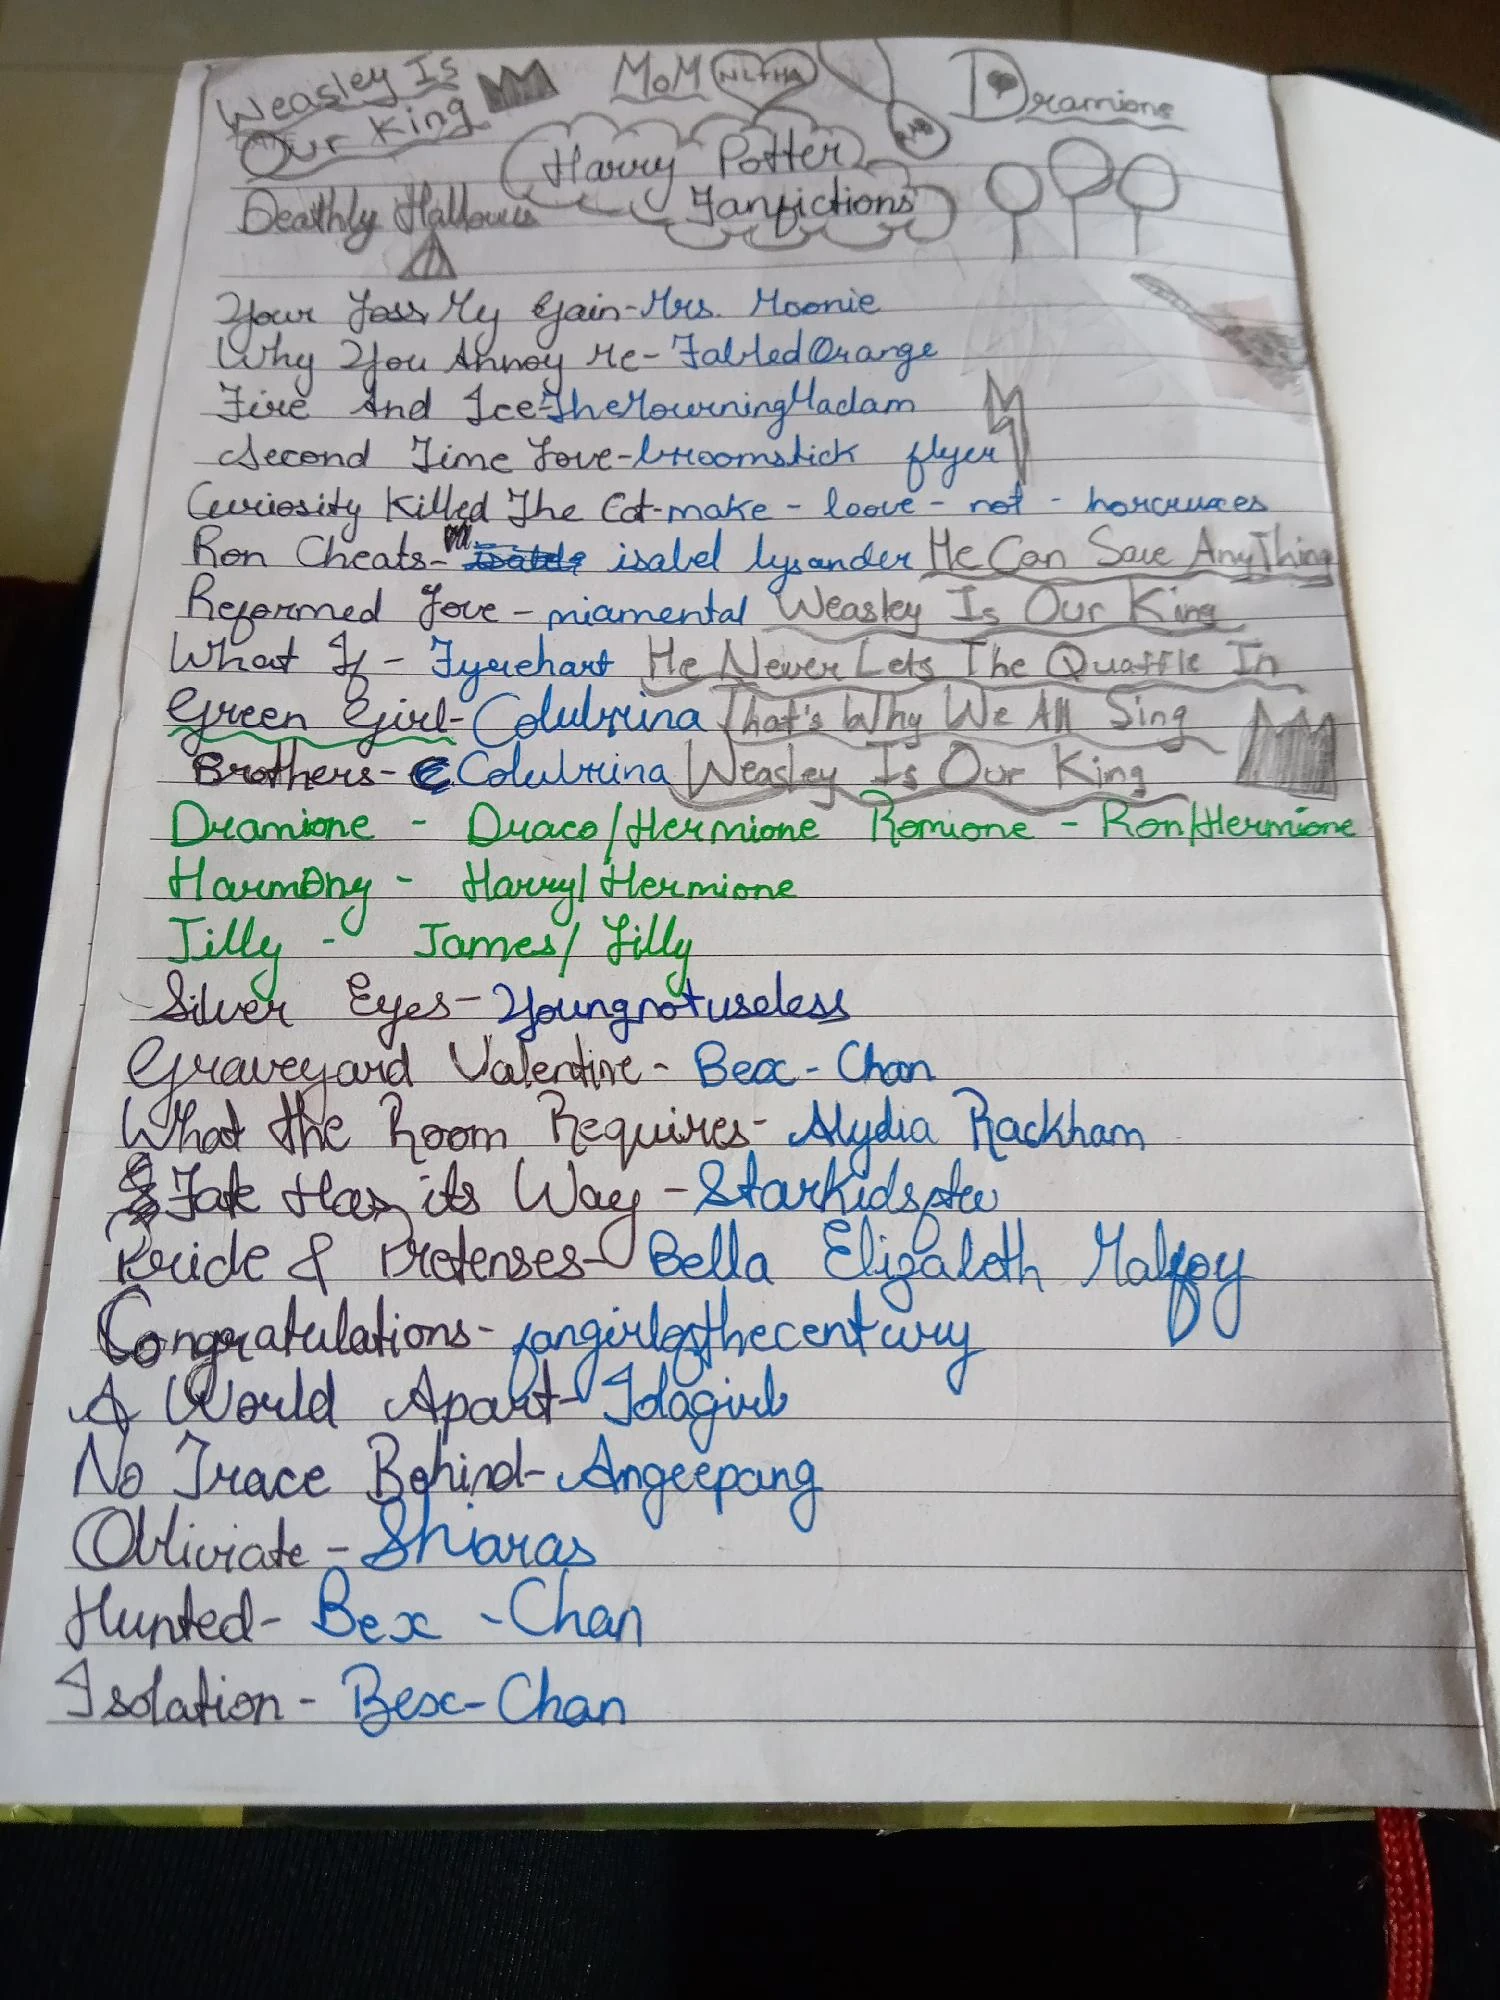 Weasley Is
Our King
MoM
Dramione
Harry Potter
Fanfictions
Deathly Hallows
Your Loss My Gain-Mrs. Moonie
Why You Annoy Me-FabledOrange
Fire And Ice-TheMourningMadam
Second Time Love-broomstick flyer
Curiosity Killed The Cat-make-loove-not-horcruxes
Ron Cheats- isabel lysander He Can Save AnyThing
Reformed Love-miamental Weasley Is Our King
What If-Fyrehart He Never Lets The Quaffle In
Green Girl-Colubrina That's Why We All Sing
Brothers-Colubrina Weasley Is Our King
Dramione - Draco/Hermione Romione - Ron/Hermione
HarmOny - Harry/Hermione
Jilly - James/Lilly
Silver Eyes-Youngnotuseless
Graveyard Valentine-Bex-Chan
What the Room Requires-Alydia Rackham
Fate Has its Way-Starkidsptw
Pride & Pretenses-Bella Elizabeth Malfoy
Congratulations-fangirlofthecentury
A World Apart-Idagirl
No Trace Behind-Angeepang
Obliviate-Shiaras
Hunted-Bex-Chan
Isolation-Bex-Chan